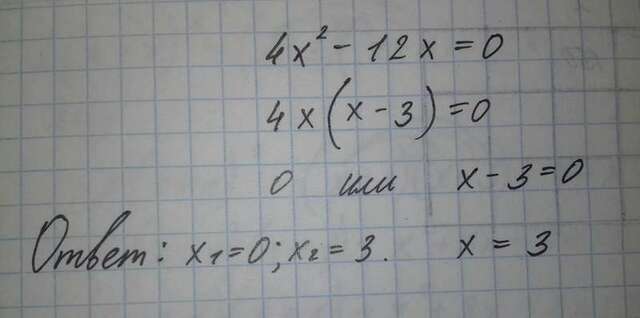 4x² - 12x = 0
4x(x - 3) = 0
0 или x - 3 = 0
Ответ: x₁ = 0; x₂ = 3. x = 3